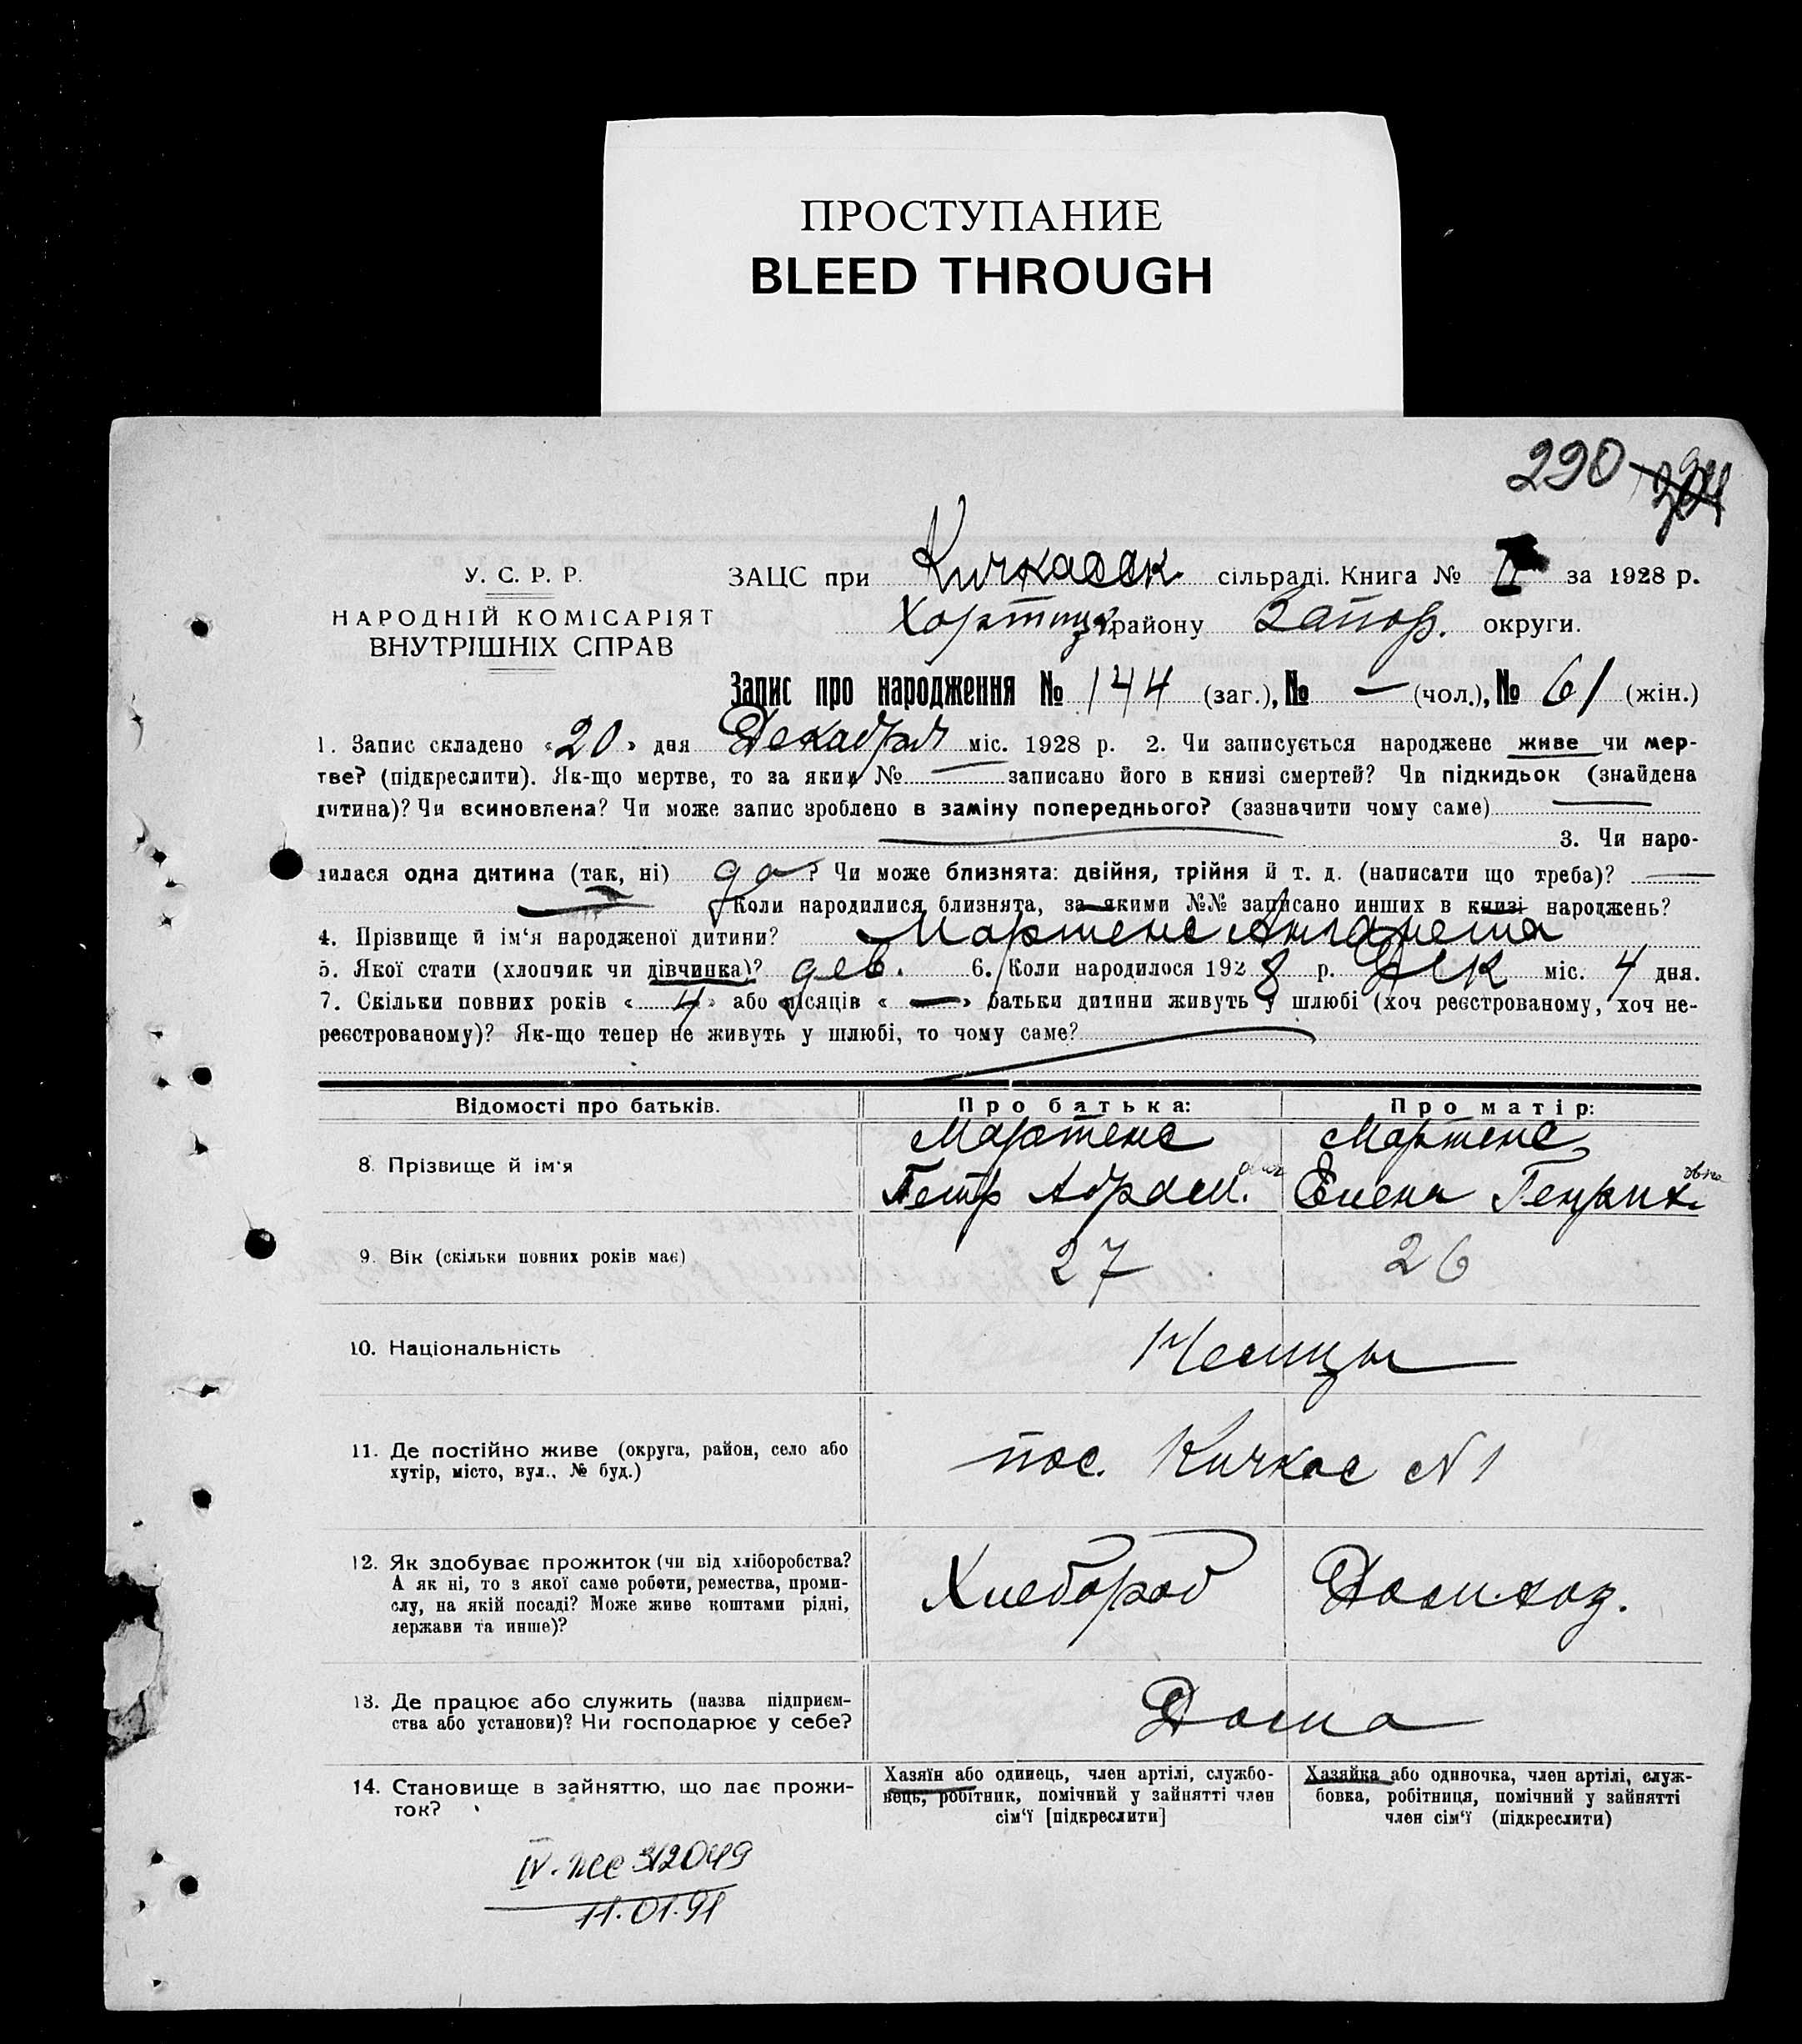 ПРОСТУПАНИЕ
BLEED THROUGH
290
У. С. Р. Р.
НАРОДНІЙ КОМІСАРІЯТ
ВНУТРІШНІХ СПРАВ
ЗАЦС при Кичкасск. сільраді. Книга № II за 1928 р.
Хортиц. району Запор. округи.
Запис про народження № 144 (заг.), № — (чол.), № 61 (жін.)
1. Запис складено «20» дня Декабря міс. 1928 р. 2. Чи записується народжене живе чи мер-
тве? (підкреслити). Як-що мертве, то за яким № — записано його в книзі смертей? Чи підкидьок (знайдена
дитина)? Чи всиновлена? Чи може запис зроблено в заміну попереднього? (зазначити чому саме) —
— 3. Чи наро-
дилася одна дитина (так, ні) да? Чи може близнята: двійня, трійня й т. д. (написати що треба)? —
— Коли народилися близнята, за якими №№ записано инших в книзі народжень? —
4. Прізвище й ім‘я народженої дитини? Мартенс Анганета
5. Якої стати (хлопчик чи дівчинка)? дев. 6. Коли народилося 1928 р. Дек міс. 4 дня.
7. Скільки повних років «4» або місяців «—» батьки дитини живуть у шлюбі (хоч реєстрованому, хоч не-
реєстрованому)? Як-що тепер не живуть у шлюбі, то чому саме? —
Відомості про батьків. Про батька: Про матір:
8. Прізвище й ім‘я Мартенс Петр Абрам.ович Мартенс Елена Генрих.овна
9. Вік (скільки повних років має) 27 26
10. Національність Немцы
11. Де постійно живе (округа, район, село або
хутір, місто, вул., № буд.) пос. Кичкас №1
12. Як здобуває прожиток (чи від хліборобства?
А як ні, то з якої саме роботи, ремества, проми-
слу, на якій посаді? Може живе коштами рідні,
держави та инше)? Хлебороб Домихоз.
13. Де працює або служить (назва підприєм-
ства або установи)? Чи господарює у себе? Дома
14. Становище в зайняттю, що дає прожи-
ток?
Хазяїн або одинець, член артілі, службо-
вець, робітник, помічний у зайнятті член
сім‘ї [підкреслити]
Хазяйка або одиночка, член артілі, служ-
бовка, робітниця, помічний у зайнятті
член сім‘ї (підкреслити)
11.01.91